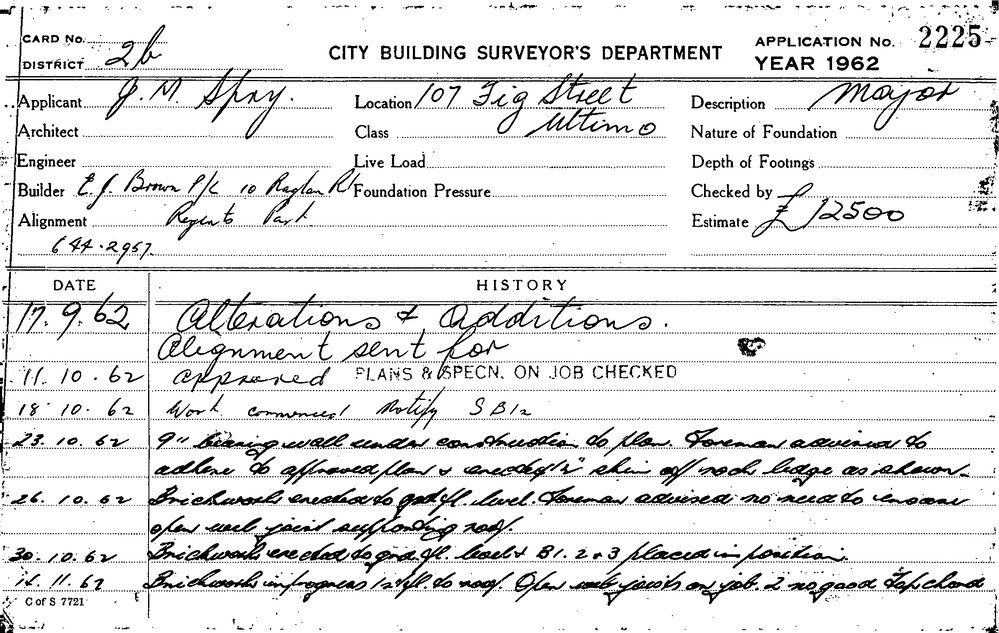 CARD No.
DISTRICT 2b
CITY BUILDING SURVEYOR'S DEPARTMENT
APPLICATION No. 2225
YEAR 1962
Applicant J. M. Spry.
Location 107 Fig Street
Description Major
Architect
Class Ultimo
Nature of Foundation
Engineer
Live Load
Depth of Footings
Builder E. J. Brown P/L 10 Raglan Rd
Foundation Pressure
Checked by
Alignment Regents Park
Estimate £12500
644.2957.
DATE HISTORY
17.9.62 Alterations & Additions.
Alignment sent for
11.10.62 approved PLANS & SPECN. ON JOB CHECKED
18.10.62 Work commenced Notify SB12
23.10.62 9" bearing wall under construction to plan. Foreman advised to
adhere to approved plan & erected skin off rock ledge as shown
26.10.62 Brickwork erected to grd fl. level. Foreman advised no need to encase
open web joist supporting roof.
30.10.62 Brickwork erected to grd fl. level & B1. 2 & 3 placed in position
14.11.62 Brickwork in progress 1st fl. to roof. Open web joists on job. 2 no good top chord
C of S 7721